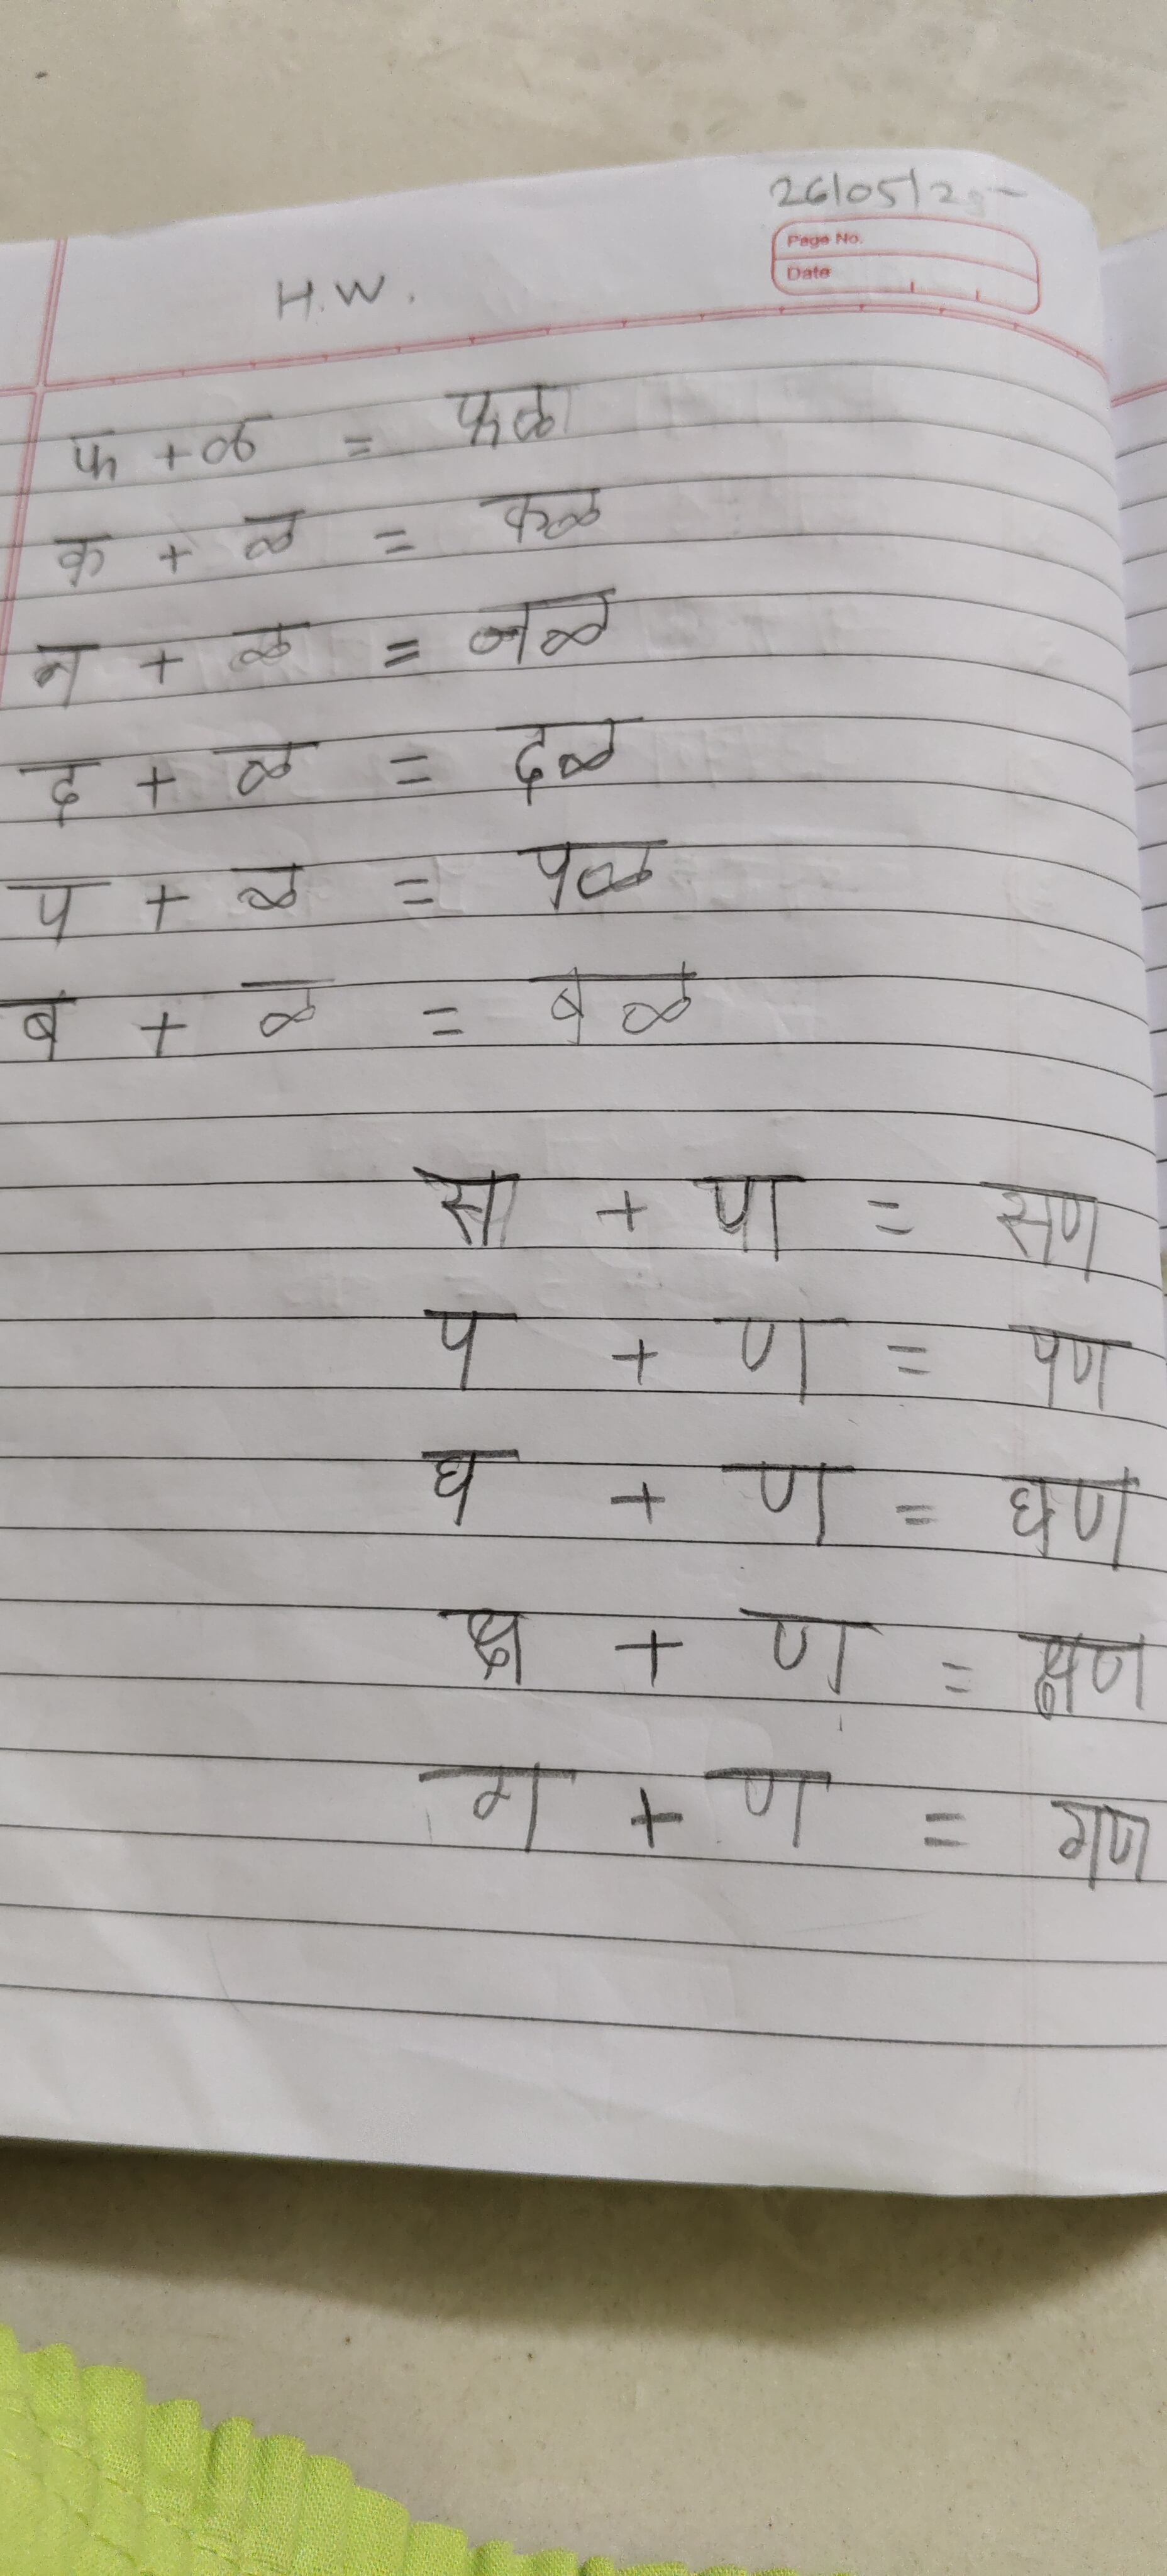 26/05/25
Page No.
Date
H.W.
फ + ळ = फळ
क + ळ = कळ
न + ळ = नळ
द + ळ = दळ
प + ळ = पळ
ब + ळ = बळ
स + ण = सण
प + ण = पण
घ + ण = घण
क्ष + ण = क्षण
ग + ण = गण